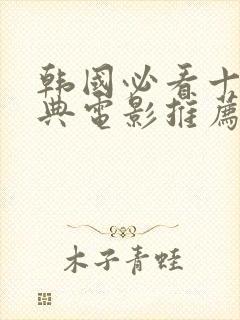 韩國必看十
典電影推薦
木子青蛙